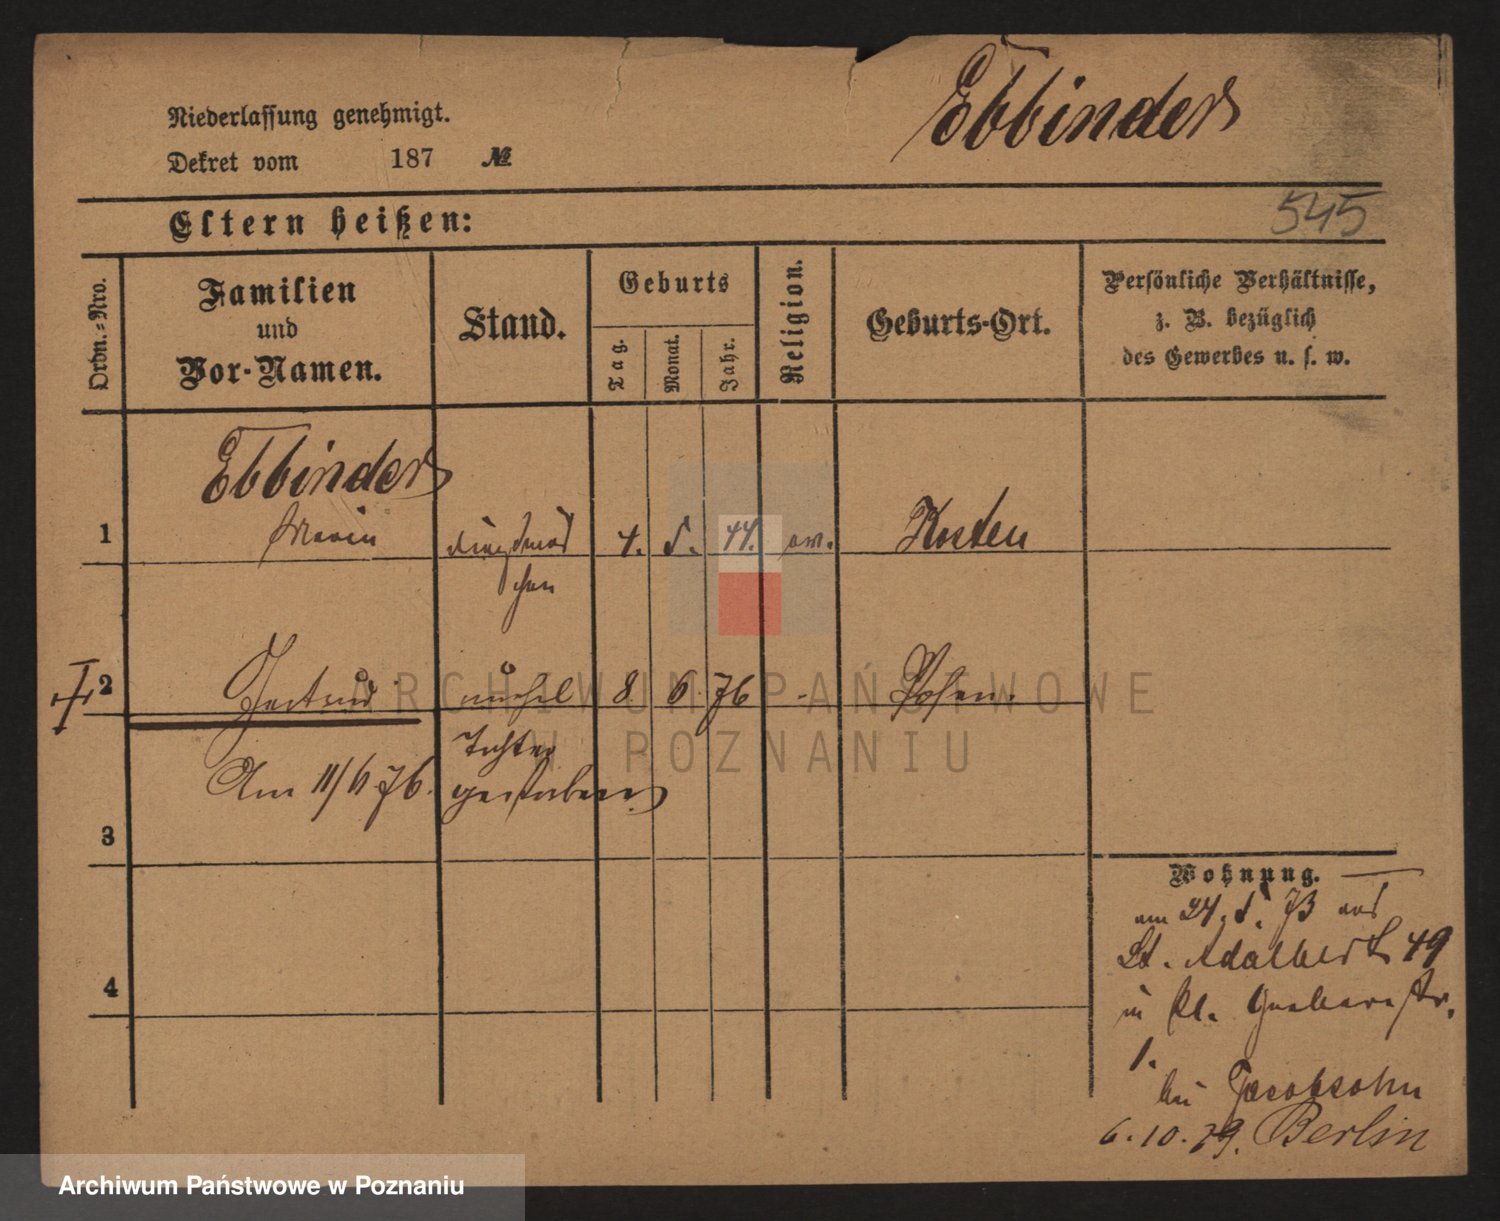 Ebbinder
Niederlassung genehmigt.
Dekret vom 187 №
545
Eltern heißen:
Ordn.=Nro.
Familien
und
Vor-Namen.
Stand.
Geburts
Tag.
Monat.
Jahr.
Religion.
Geburts-Ort.
Persönliche Verhältnisse,
z. B. bezüglich
des Gewerbes u. s. w.
Ebbinder
1 Maria Dienstmäd 4. 5. 44. ev. Kosten
chen
2 Gertrud unehel 8 6 76 - Posen.
Tochter
Am 11/6 76. gestorben.
3
4
Wohnung.
am 24. 5. 73 aus
St. Adalbert 49
in kl. Gerberstr.
1.
bei Jacobsohn
6.10.79. Berlin
ARCHIWUM PAŃSTWOWE
W POZNANIU
Archiwum Państwowe w Poznaniu